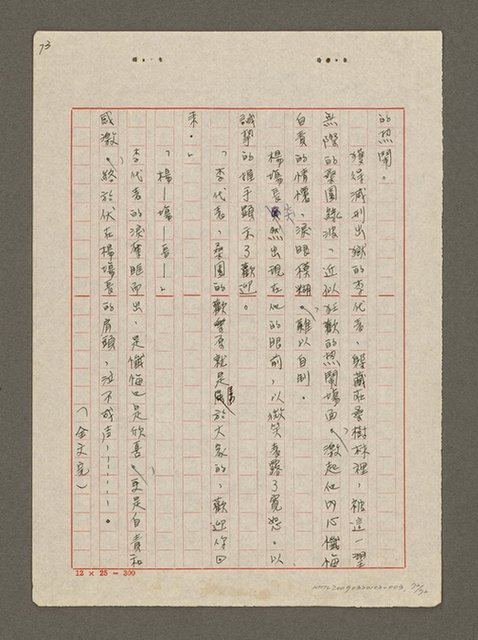 73
的熱鬧。
獲得減刑出獄的李代表，躲藏在桑樹林裡，被這一望
無際的桑園綠波，近似狂歡的熱鬧場面，激起他內心懺悔
自責的情懷，淚眼模糊，難以自制。
楊場長突然出現在他的眼前，以微笑表露了寬恕。以
誠摯的握手顯示了歡迎。
「李代表，桑園的歡聲就是屬於大家的，歡迎你回
來。」
「楊—場—長—」
李代表的淚奪眶而出，是懺悔也是欣喜，更是自責和
感激，終於伏在楊場長的肩頭，泣不成声……。
（全文完）
12 × 25 = 300
NMTL20090320102-003
72/72